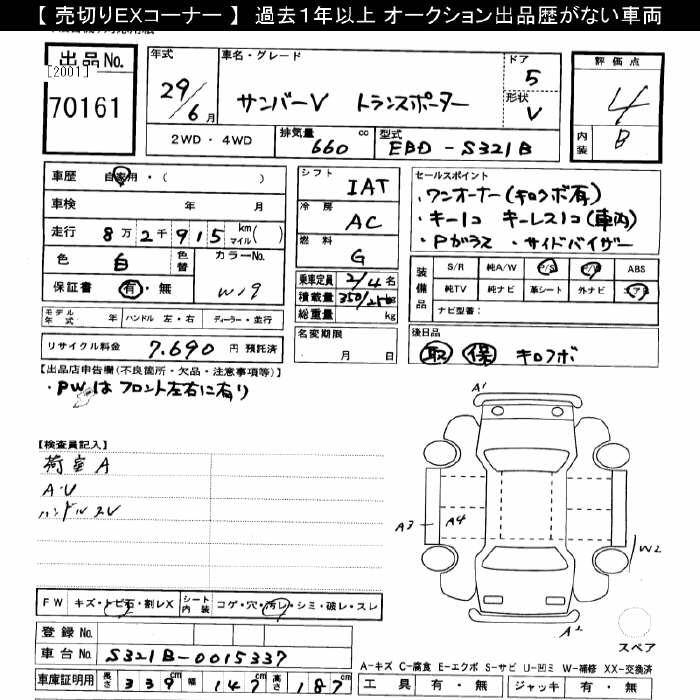 【 売切りEXコーナー 】 過去1年以上 オークション出品歴がない車両
出品No.
[2001]
70161
年式
29/6月
車名・グレード
サンバーV トランスポーター
ドア
5
形状
V
評価点
4
内装
B
2WD・4WD
排気量
660
cc
型式
EBD - S321B
車歴
自家用・( )
車検
年 月
走行
8万2千915
km
マイル( )
色
白
色替
カラーNo.
W19
保証書
有・無
シフト
IAT
冷房
AC
燃料
G
乗車定員
2/4名
積載量
350/250
総重量
kg
名変期限
月 日
セールスポイント
・ワンオーナー(キロクボ有)
・キー1コ キーレス1コ(車内)
・Pガラス ・サイドバイザー
装備品
S/R 純A/W P/S P/W ABS
純TV 純ナビ 革シート 外ナビ エアB
ナビ型番:
モデル年式
年
ハンドル 左・右
ディーラー・並行
リサイクル料金
7,690
円 預託済
後日品
取 保 キロクボ
【出品店申告欄(不良箇所・欠品・注意事項等)】
・PWはフロント左右に有り
【検査員記入】
荷室A
A・U
ハンドルスレ
A1
A3
A4
W2
A2
スペア
FW
キズ・トビ石・割レX
シート内装
コゲ・穴・汚レ・シミ・破レ・スレ
登録No.
車台No.
S321B-0015337
車庫証明用
長さ
339
cm
幅
147
cm
高さ
187
cm
A-キズ C-腐食 E-エクボ S-サビ U-凹ミ W-補修 XX-交換済
工具
有・無
ジャッキ
有・無